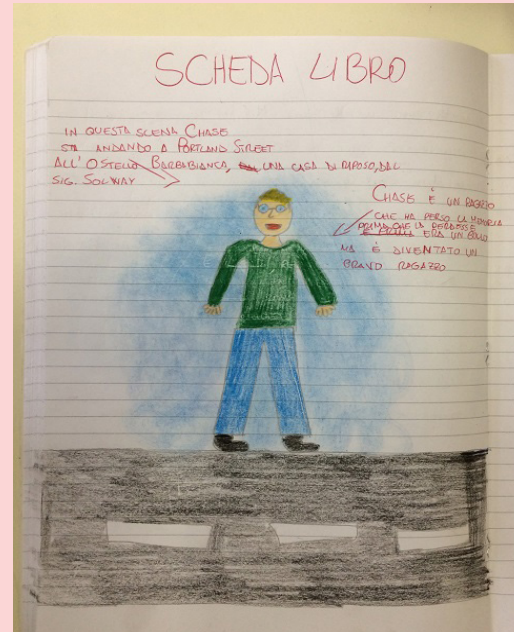 SCHEDA LIBRO
IN QUESTA SCENA CHASE
STA ANDANDO A PORTLAND STREET
ALL'OSTELLO BARBABIANCA, UNA CASA DI RIPOSO, DAL
SIG. SOLWAY
CHASE È UN RAGAZZO
CHE HA PERSO LA MEMORIA
PRIMA CHE LA PERDESSE
ERA UN BULLO
MA È DIVENTATO UN
BRAVO RAGAZZO